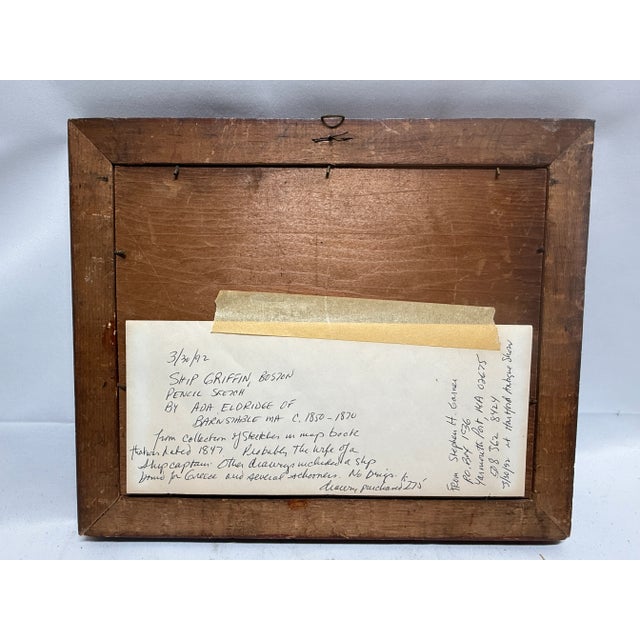 3/30/92
SHIP GRIFFIN, BOSTON
PENCIL SKETCH
BY ADA ELDRIDGE OF
BARNSTABLE MA C. 1850-1870
from collection of sketches in map book
that is dated 1847 Probably the wife of a
ship captain. Other drawings included a ship
bound for Greece and several schooners. No
drawing purchased 275
From Stephen H. Garner
P.O. BOX 156
Yarmouth Port, MA 02675
508 362 8424
3/30/92 at Hartford Antique Show